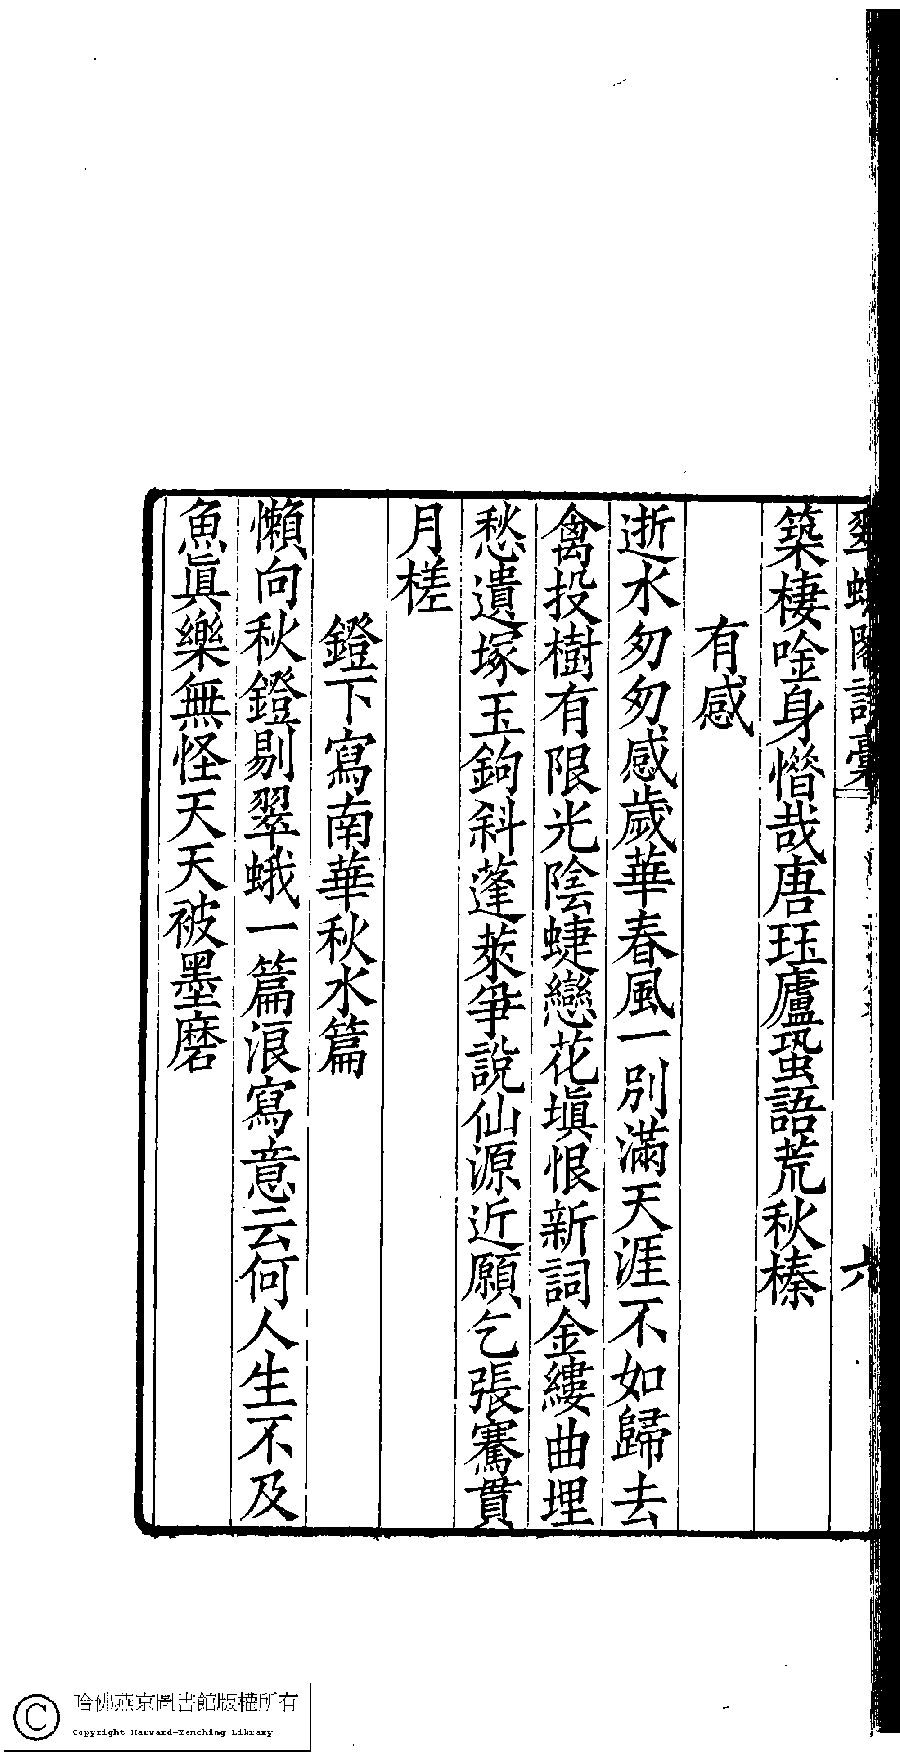 詩藁 六
築棲唫身憯哉唐珏廬蛩語荒秋榛
有感
逝水匆匆感歲華春風一別滿天涯不如歸去
禽投樹有限光陰蜨戀花塡恨新詞金縷曲埋
愁遺塚玉鉤斜蓬萊爭說仙源近願乞張騫貫
月槎
鐙下寫南華秋水篇
懶向秋鐙剔翠蛾一篇浪寫意云何人生不及
魚眞樂無怪天天被墨磨
哈佛燕京圖書館版權所有
Copyright Harvard-Yenching Library